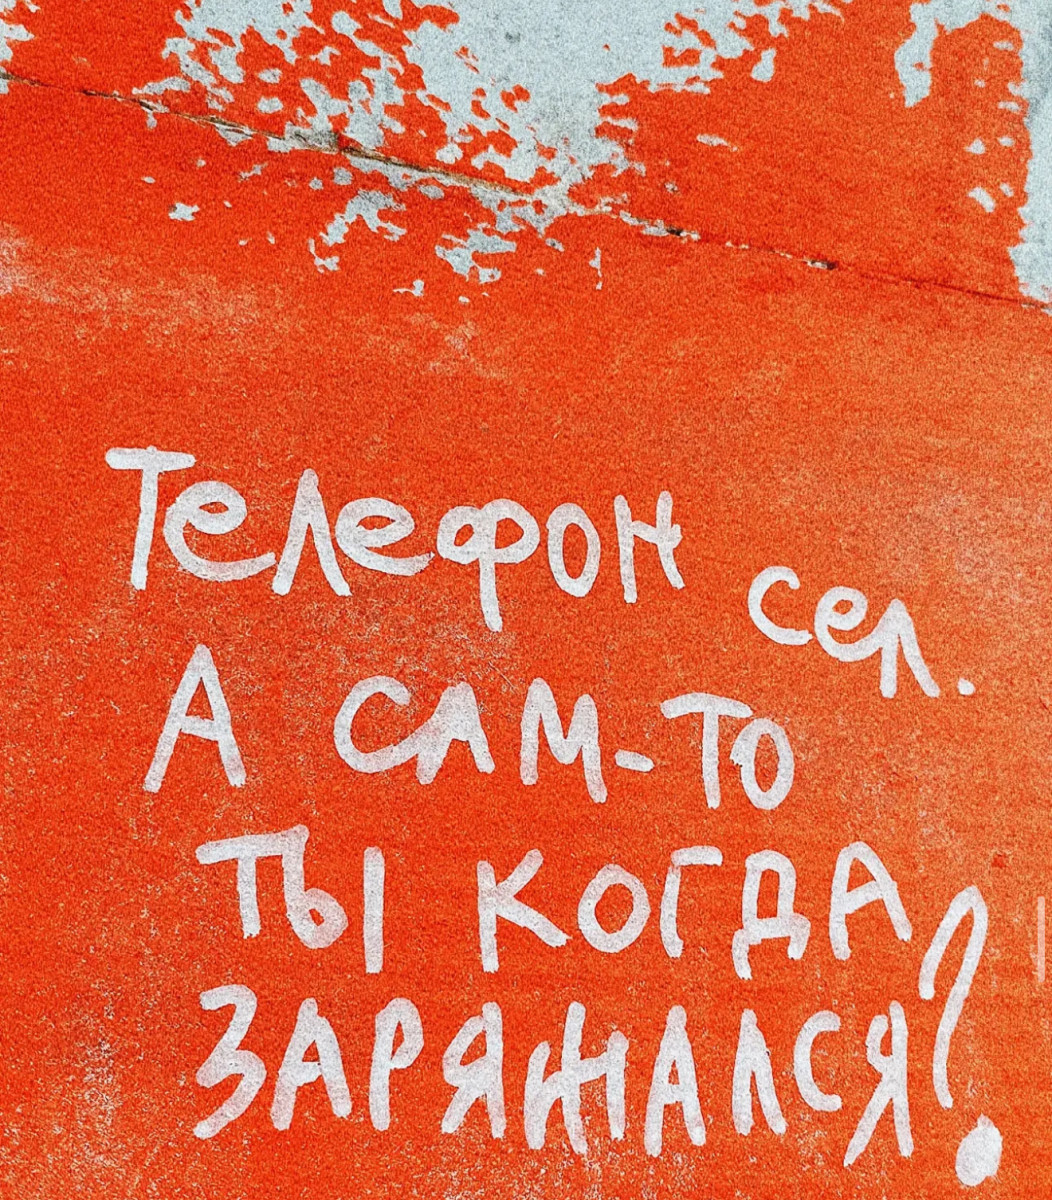 Телефон сел.
А САМ-ТО
ТЫ КОГДА
ЗАРЯЖАЛСЯ?